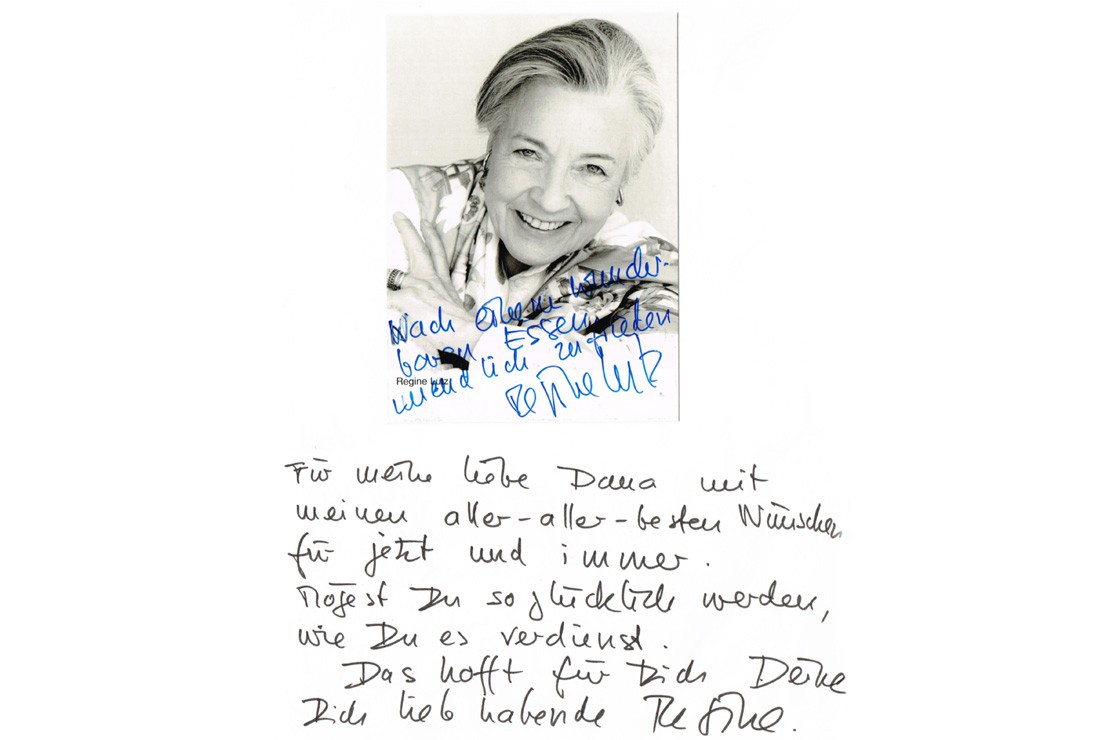 Nach einem wunder-
baren Essen
unendlich zufrieden
Regine Lutz
Regine Lutz
Für meine liebe Dana mit
meinen aller-aller-besten Wünschen
für jetzt und immer.
Mögest Du so glücklich werden,
wie Du es verdienst.
Das hofft für Dich Deine
Dich lieb habende Regine.